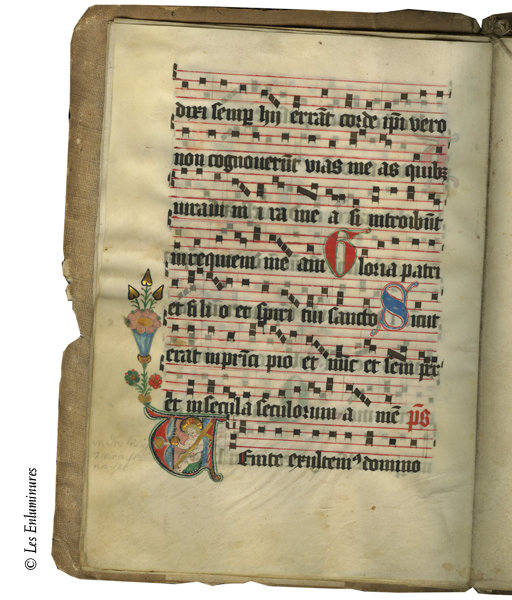 dixi semp hij errāt corde ip̄i vero
non cognouerūt vias me as quibꝫ
iuraui in i ra me a si introibūt
in requiem me am Gloria patri
et fi li o et spiri tui sancto Sicut
erat in prīci pio et nūc et sem per
et in secula seculorum a mē p̄s
Uenite exultemꝰ domino
© Les Enluminures